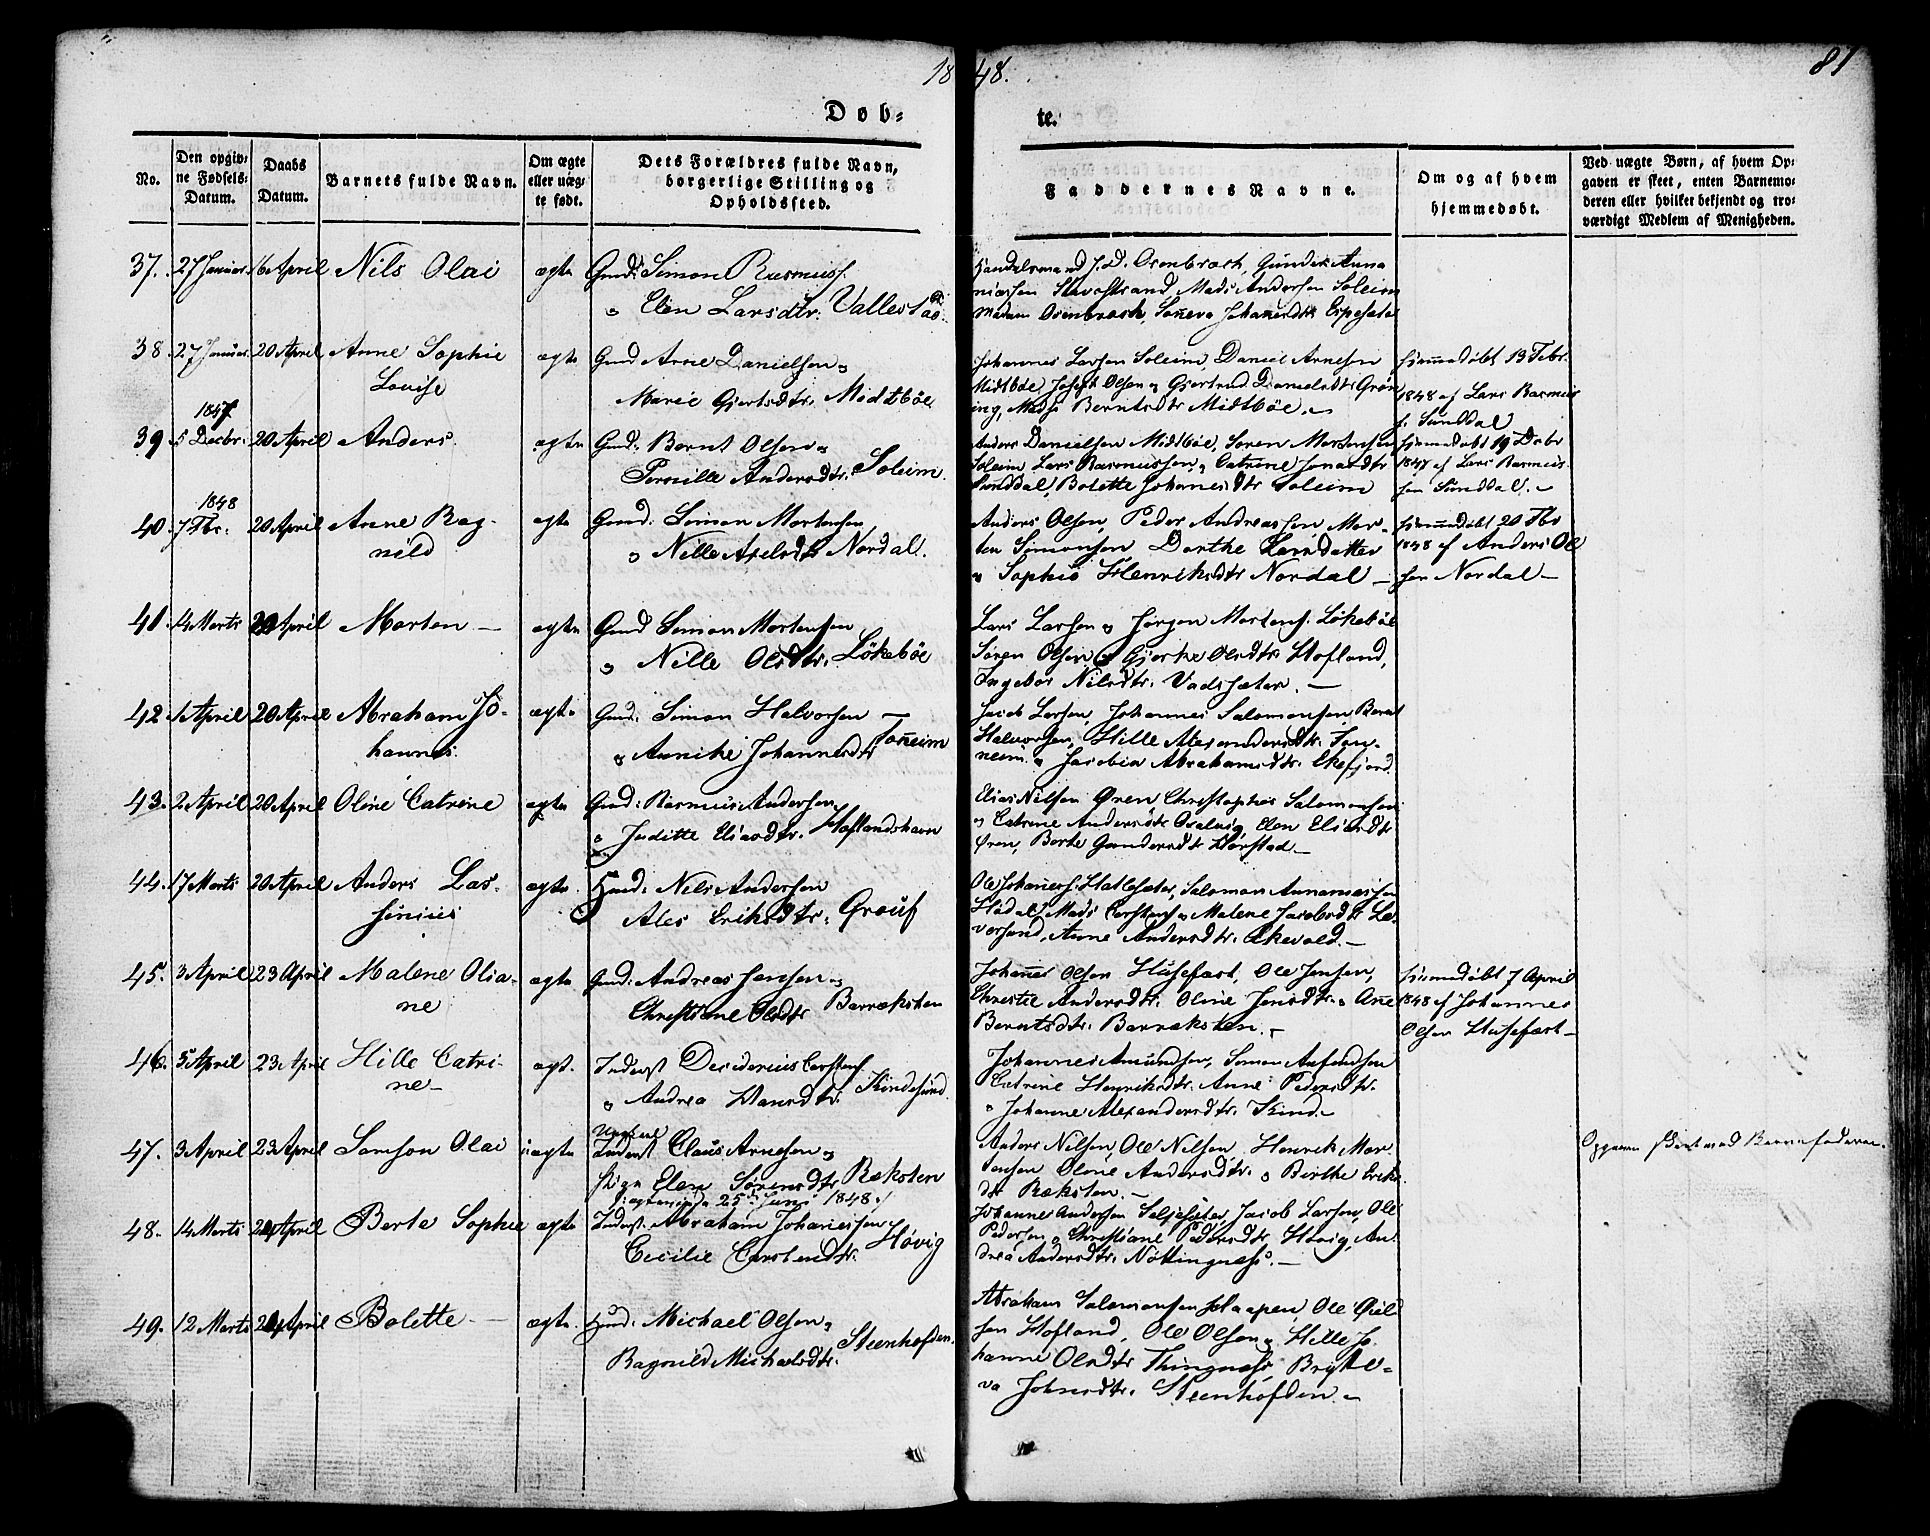 1848.
81
Døbte.
No.
Den opgivne Fødsels-Datum.
Daabs Datum.
Barnets fulde Navn.
Om ægte eller uægte født.
Dets Forældres fulde Navn, borgerlige Stilling og Opholdssted.
Faddernes Navne.
Om og af hvem hjemmedøbt.
Ved uægte Børn, af hvem Opgaven er skeet, enten Barnemoderen eller hvilket bekjendt og troværdigt Medlem af Menigheden.
37. 27 Januar 16 April Nils Olai ægte Gmd: Simon Rasmuss.
" Elen Larsdtr: Vallestad
Handelsmand J. D. Osenbroch, Gunder Anna
niassen Stavostrand, Mads Andersen Soleim
Madam Osenbroch, Tomeva Johannesdtr Espeseter
38. 27 Januar 20 April Anne Sophie
Lovise
ægte Gmd Arne Danielsen og
Marie Gjertsdtr: Midtböe
Johannes Larsen Soleim, Daniel Arnesen
Midtböe, Joseph Olsen og Gjertrud Danielsdtr Grön
ing, Madse Berntsdtr Midtböe.
Hjemmedøbt 13 Febr:
1848 af Lars Rasmus
s. Sunddal
39. 1847 5 Decbr: 20 April Anders. ægte Gmd: Bernt Olsen og
Pernille Andersdtr: Soleim.
Anders Danielsen Midtböe, Sören Mortensen
Soleim, Lars Rasmussen, og Catrine Jonasdtr
Sunddal, Bolette Johannesdtr Soleim
Hjemmedøbt 19 Decbr
1847 af Lars Rasmus
sen Sunddal.
40. 1848 7 Fbr: 20 April Anne Rag-
nild
ægte Gmd: Simon Mortensen
" Nille Axelsdtr Nordal.
Anders Olsen, Peder Andreassen, Mor-
ten Simonsen, Dorthe Larsdatter
og Sophie Henriksdtr Nordal
Hjemmedøbt 20 Fbr
1848 af Anders Ol
sen Nordal
41. 4 Marts 20 April Morten ægte Gmd Simon Mortensen
" Nille Olsdtr: Lökeböe
Lars Larsen og Jörgen Mortens: Lökeböe
Sören Olsen og Gjertrue Olsdtr: Hofland,
Ingebor Nilsdtr: Vadseter.
42. 1 April 20 April Abraham Jo-
hannes
ægte Gmd: Simon Halvorsen
" Annike Johannesdtr Tonneim
Jacob Larsen, Johannes Salomonsen, Bernt
Halvorsen, Hille Alexandersdtr. Ton-
neim og Jacobia Abrahamsdtr: Ekefjord.
43. 2 April 20 April Oline Catrine ægte Gmd: Rasmus Andersen
" Juditte Eliasdtr. Hoflandshavn
Elias Nilsen Ören, Christopher Salomonsen
og Catrine Andersdtr Oselvig, Elen Eliasdtr
Ören, Berte Gundersdtr Hörstad
44. 17 Marts 20 April Anders Las-
senius
ægte Hmd: Nils Andersen
Ales Eriksdtr: Grouf
Ole Johannes: Hatleseter, Salomon Annaniassen
Hödal, Mads Carstens: og Malene Jacobsdtr Le-
vorsund, Anne Andersdtr: Ekevold.
45. 3 April 23 April Malene Olia-
ne
ægte Gmd: Andreas Jensen og
Christiane Olsdtr Barreksten
Johannes Olsen Husefæst, Ole Jensen,
Christie Andersdtr: Oline Jensdtr: og Anne
Berntsdtr: Barreksten.
Hjemmedøbt 7 April
1848 af Johannes
Olsen Husefæst
46. 5 April 23 April Hille Catri-
ne
ægte. Inderst Desiderius Carstens:
" Andrea Hansdtr: Kindesund.
Johannes Amundsen, Simon Anfindsen
Catrine Henriksdtr: Anne Pedersdtr:
" Johanne Alexandersdtr. Kind.
47. 3 April 23 April Samson Olai uægte Ungkarl Inderst Claus Arnesen og
Pige Elen Sörensdtr Reksten
ægteviede 25de Juni 1848
Anders Nilsen, Ole Nilsen, Henrik Mor
tensen, Oline Andersdtr: og Birthe Eriks
dtr Reksten.
Opgaven skeet med Barnefaderen.
48. 14 Marts 24 April Berte Sophie ægte Inderst: Abraham Johannessen
Cecilie Carstensdtr: Hövig
Johanne Andersen Seljeseter, Jacob Larsen, Ole
Pedersen og Christiane Pedersdtr Hövig, An-
drea Andersdtr: Nöttingnæss.
49. 12 Marts 24 April Bolette ægte. Hmd: Michael Olsen og
Ragnild Michaelsdtr: Steenhofden.
Abraham Salomonsen Haapen, Ole
sen Hofland, Ole Olsen og Hille Jo
hanne Olsdtr Thingnæss, Brytte-
va Johnsdtr. Steenhofden.